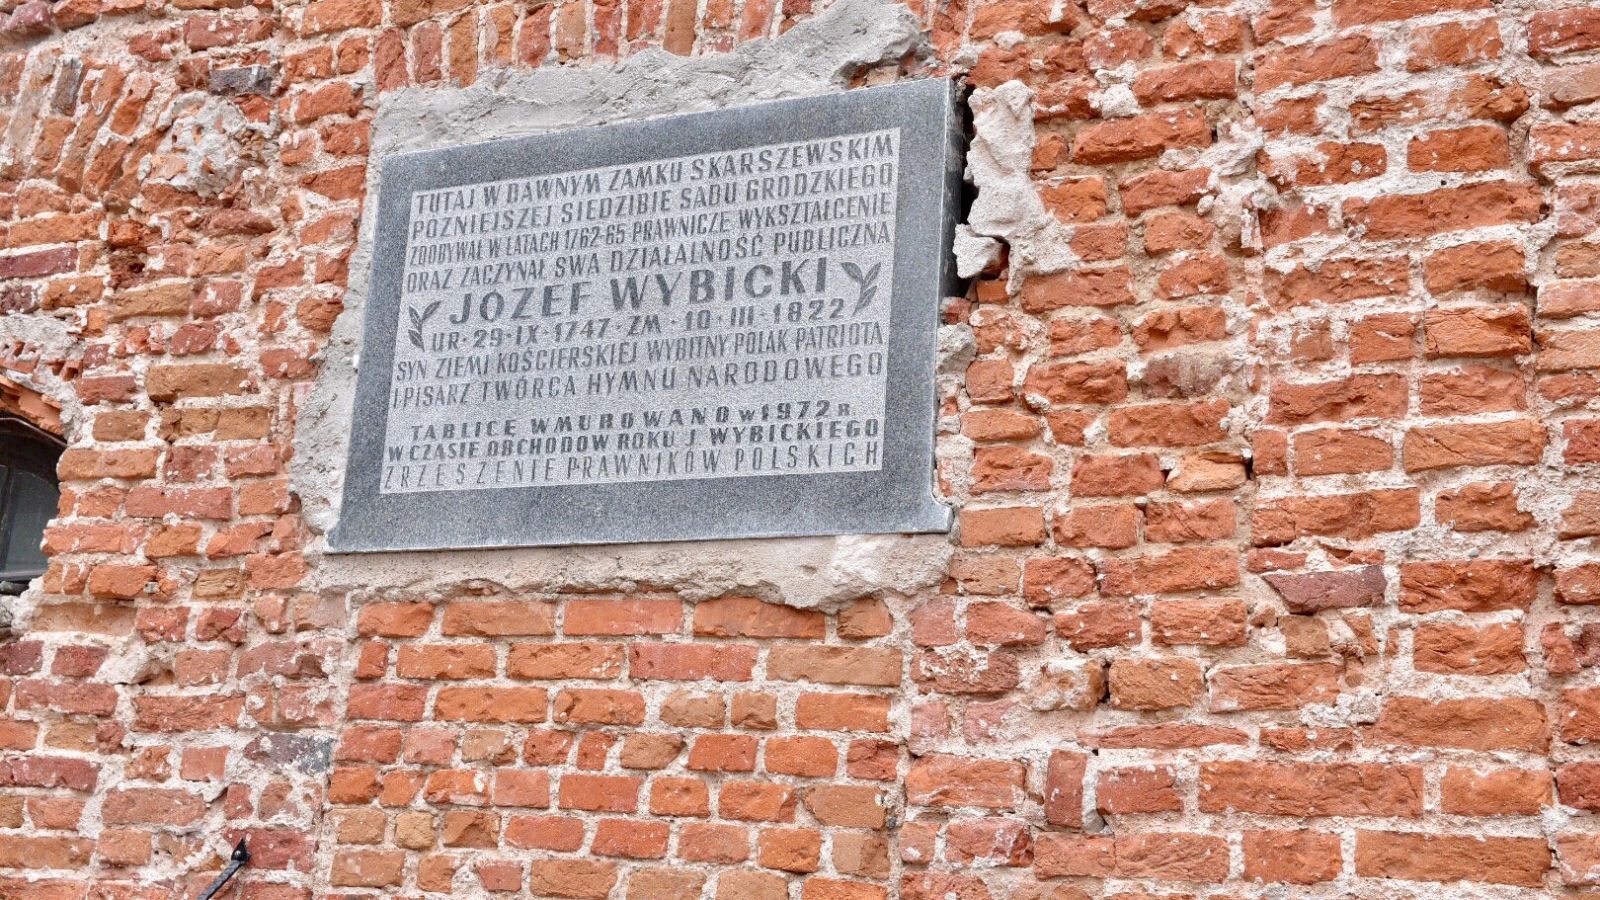 TUTAJ W DAWNYM ZAMKU SKARSZEWSKIM
PÓŹNIEJSZEJ SIEDZIBIE SĄDU GRODZKIEGO
ZDOBYWAŁ W LATACH 1762-65 PRAWNICZE WYKSZTAŁCENIE
ORAZ ZACZYNAŁ SWĄ DZIAŁALNOŚĆ PUBLICZNĄ
JÓZEF WYBICKI
UR·29·IX·1747·ZM·10·III·1822
SYN ZIEMI KOŚCIERSKIEJ WYBITNY POLAK PATRIOTA
I PISARZ TWÓRCA HYMNU NARODOWEGO
TABLICĘ WMUROWANO W 1972 R.
W CZASIE OBCHODÓW ROKU J. WYBICKIEGO
ZRZESZENIE PRAWNIKÓW POLSKICH